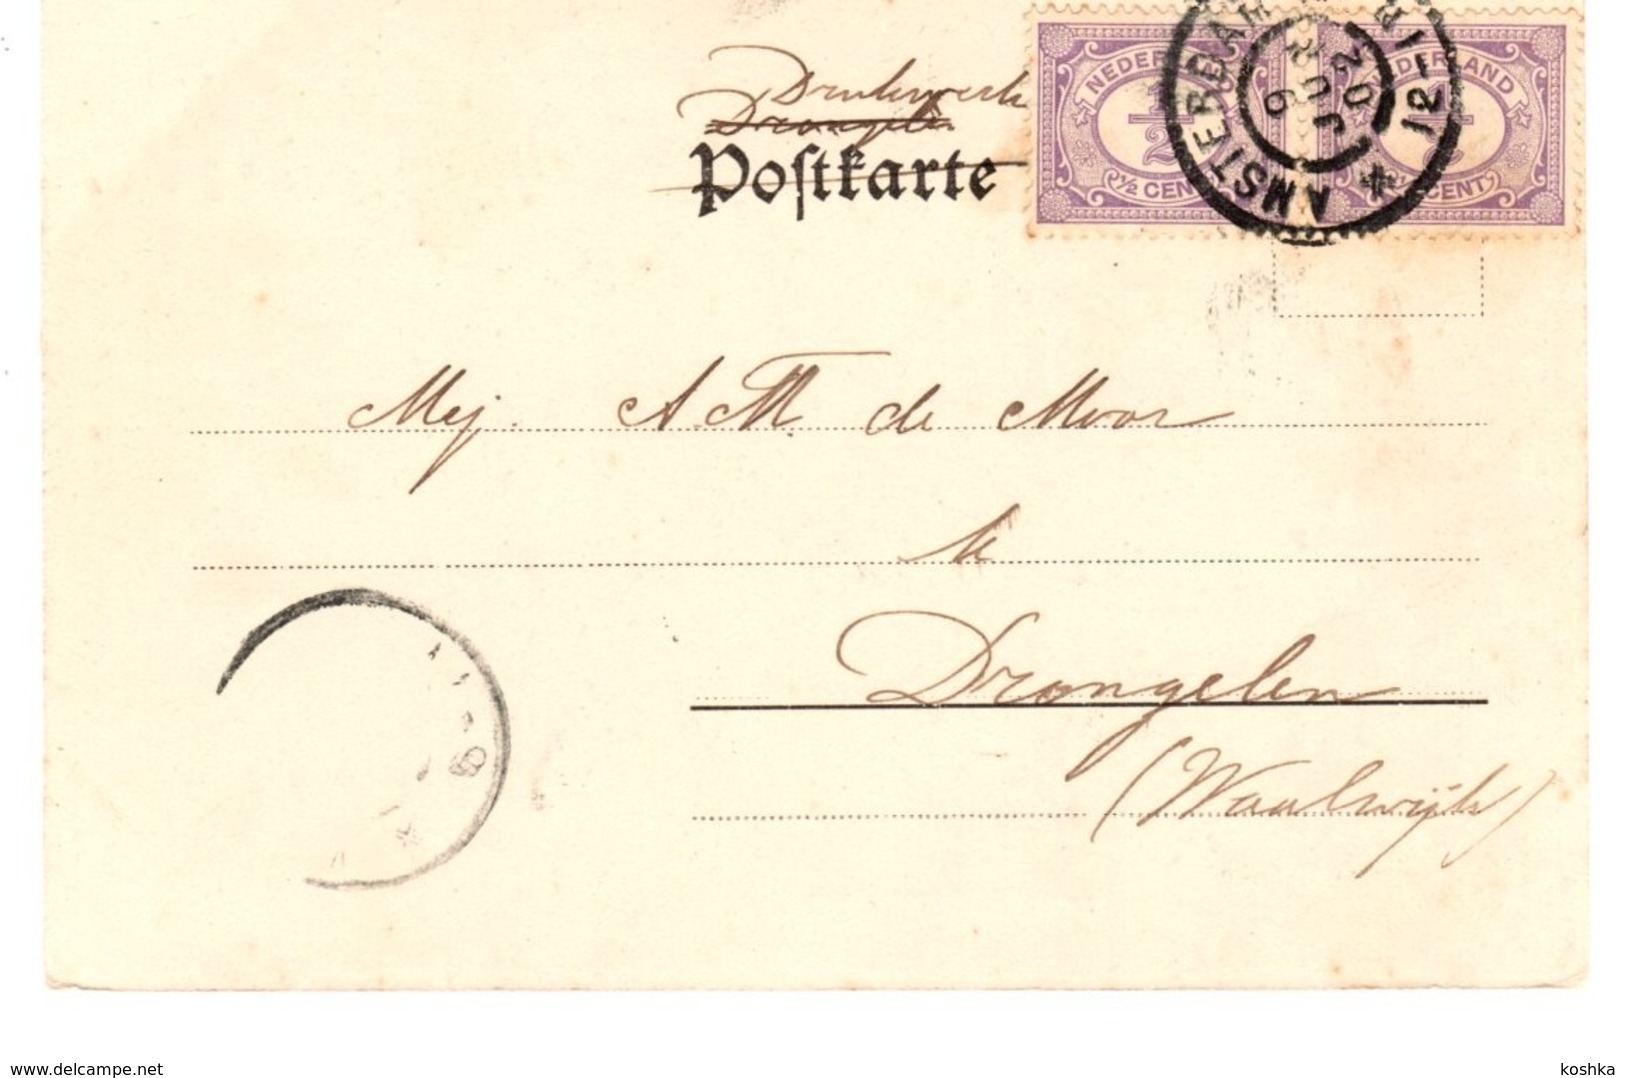 Drukwerk
Drongelen
Postkarte
NEDERLAND
1/2
½ CENT
NEDERLAND
½ CENT
AMSTERDAM
12-1
Mej. A. M. de Moor
te
Drongelen
(Waalwijk)
www.delcampe.net
koshka